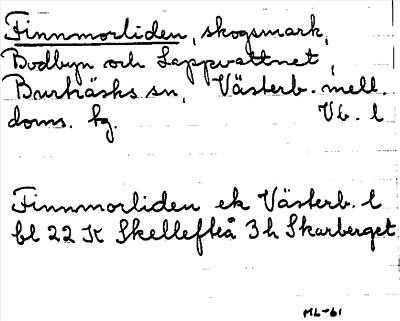 Finnmorliden, skogsmark,
Bodbyn och Lappvattnet,
Burträsks sn, Västerb. mell.
doms. fg. Vb. l
Finnmorliden ek Västerb. l
bl 22 K Skellefteå 3 h Skarberget
ML-61